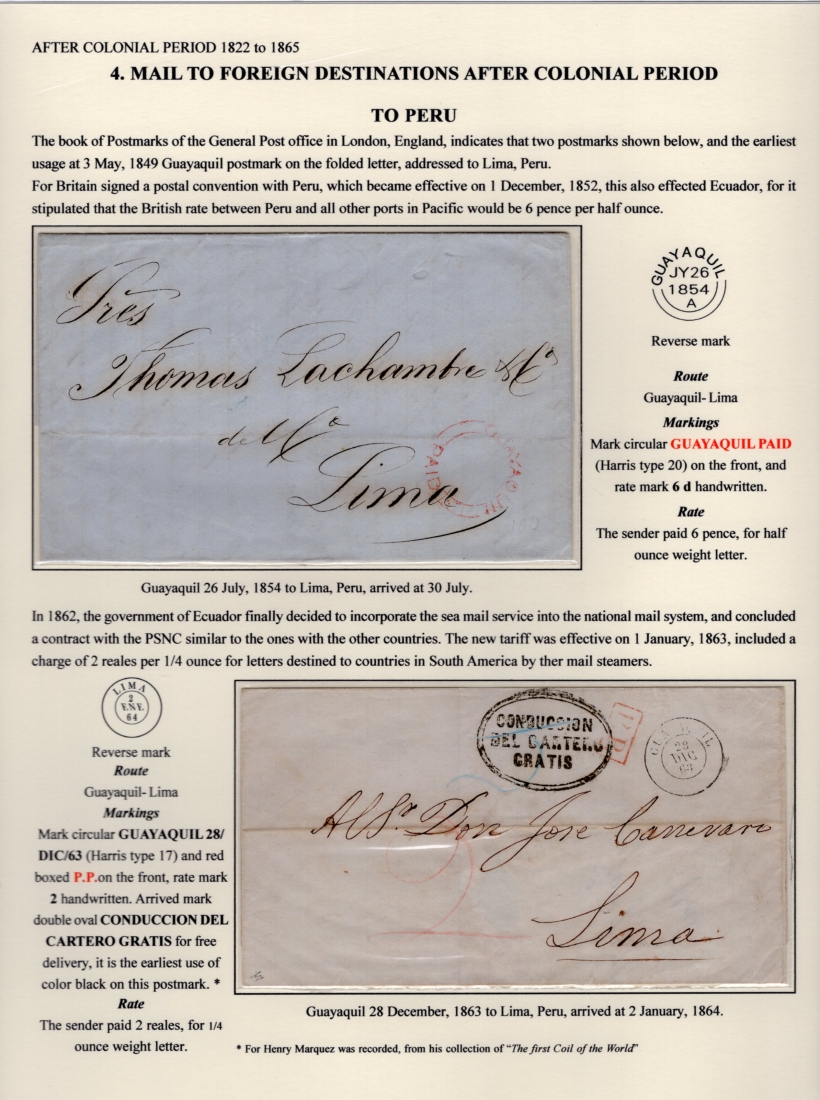 AFTER COLONIAL PERIOD 1822 to 1865
4. MAIL TO FOREIGN DESTINATIONS AFTER COLONIAL PERIOD
TO PERU
The book of Postmarks of the General Post office in London, England, indicates that two postmarks shown below, and the earliest
usage at 3 May, 1849 Guayaquil postmark on the folded letter, addressed to Lima, Peru.
For Britain signed a postal convention with Peru, which became effective on 1 December, 1852, this also effected Ecuador, for it
stipulated that the British rate between Peru and all other ports in Pacific would be 6 pence per half ounce.
Sres
Thomas Lachambre & Ca
del Ca
Lima
GUAYAQUIL
PAID
GUAYAQUIL
JY26
1854
A
Reverse mark
Route
Guayaquil- Lima
Markings
Mark circular GUAYAQUIL PAID
(Harris type 20) on the front, and
rate mark 6 d handwritten.
Rate
The sender paid 6 pence, for half
ounce weight letter.
Guayaquil 26 July, 1854 to Lima, Peru, arrived at 30 July.
In 1862, the government of Ecuador finally decided to incorporate the sea mail service into the national mail system, and concluded
a contract with the PSNC similar to the ones with the other countries. The new tariff was effective on 1 January, 1863, included a
charge of 2 reales per 1/4 ounce for letters destined to countries in South America by ther mail steamers.
LIMA
2
ENE
64
Reverse mark
Route
Guayaquil- Lima
Markings
Mark circular GUAYAQUIL 28/
DIC/63 (Harris type 17) and red
boxed P.P.on the front, rate mark
2 handwritten. Arrived mark
double oval CONDUCCION DEL
CARTERO GRATIS for free
delivery, it is the earliest use of
color black on this postmark. *
Rate
The sender paid 2 reales, for 1/4
ounce weight letter.
CONDUCCION
DEL CARTERO
GRATIS
P.P.
28
DIC
63
Al Sr Don Jose Canevaro
2
Lima
Guayaquil 28 December, 1863 to Lima, Peru, arrived at 2 January, 1864.
* For Henry Marquez was recorded, from his collection of "The first Coil of the World"